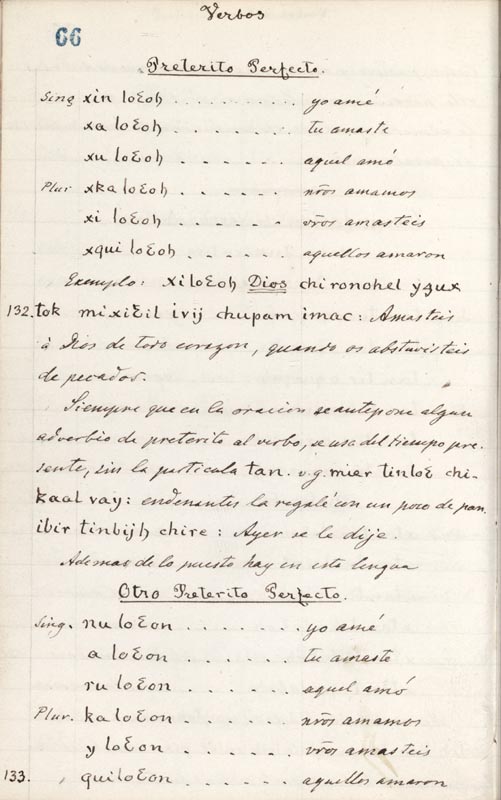 Verbos
66
Preterito Perfecto.
Sing xin loƐoh . . . . . . . . . . yo amé
xa loƐoh . . . . . . . tu amaste
xu loƐoh . . . . . . aquel amó
Plur xka loƐoh . . . . . . nr̃os amamos
xi loƐoh . . . . . . vr̃os amasteis
xqui loƐoh . . . . . . aquellos amaron
Exemplo: xiloƐoh Dios chironohel yꜫux
132. tok mixiƐil ivij chupam imac: Amasteis
à Dios de todo corazon, quando os abstuvisteis
de pecados.
Siempre que en la oracion se antepone algun
adverbio de preterito al verbo, se usa del tiempo pre-
sente, sin la particula tan. v.g. mier tinloƐ chi-
kaal vay: endenantes la regalé con un poco de pan.
ibir tinbijh chire: Ayer se le dije
Ademas de lo puesto hay en esta lengua
Otro Preterito Perfecto.
Sing. nu loƐon . . . . . . . yo amé
a loƐon . . . . . . tu amaste
ru loƐon . . . . . . aquel amó
Plur. ka loƐon . . . . . . nr̃os amamos
y loƐon . . . . . . vr̃os amasteis
133. quiloƐon . . . . . . aquellos amaron